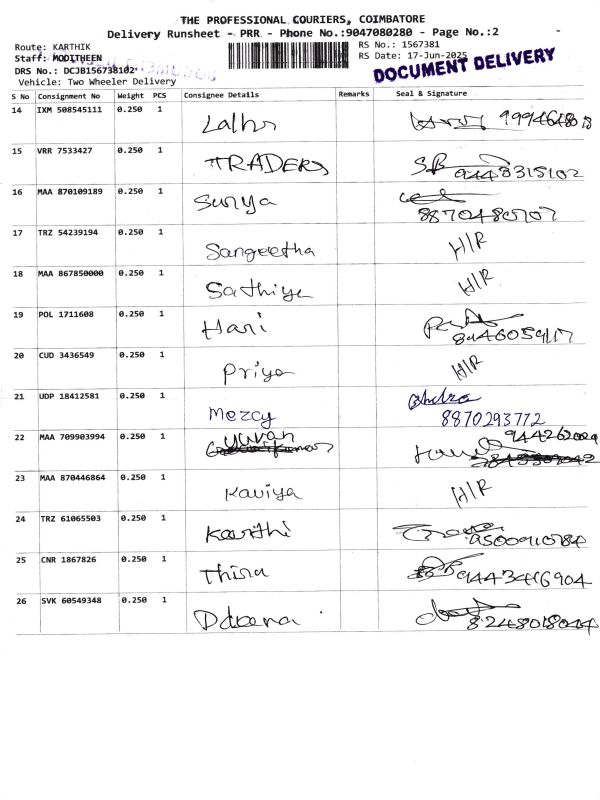 THE PROFESSIONAL COURIERS, COIMBATORE
Delivery Runsheet - PRR - Phone No.:9047080280 - Page No.:2
Route: KARTHIK
RS No.: 1567381
Staff: MODITHEEN
RS Date: 17-Jun-2025
DRS No.: DCJB156738102
DOCUMENT DELIVERY
Vehicle: Two Wheeler Delivery
S No Consignment No Weight PCS Consignee Details Remarks Seal & Signature
14 IXM 508545111 0.250 1
15 VRR 7533427 0.250 1 TRADERS
16 MAA 870109189 0.250 1 Surya
17 TRZ 54239194 0.250 1 Sangeetha H/R
18 MAA 867850000 0.250 1 Sathiya H/R
19 POL 1711608 0.250 1 Hari
20 CUD 3436549 0.250 1 Priya H/R
21 UDP 18412581 0.250 1 Mercy 8870293772
22 MAA 709903994 0.250 1 Yuvan
23 MAA 870446864 0.250 1 Kaviya H/R
24 TRZ 61065503 0.250 1 Karthi 9500910784
25 CNR 1867826 0.250 1 9443416904
26 SVK 60549348 0.250 1 8248018044